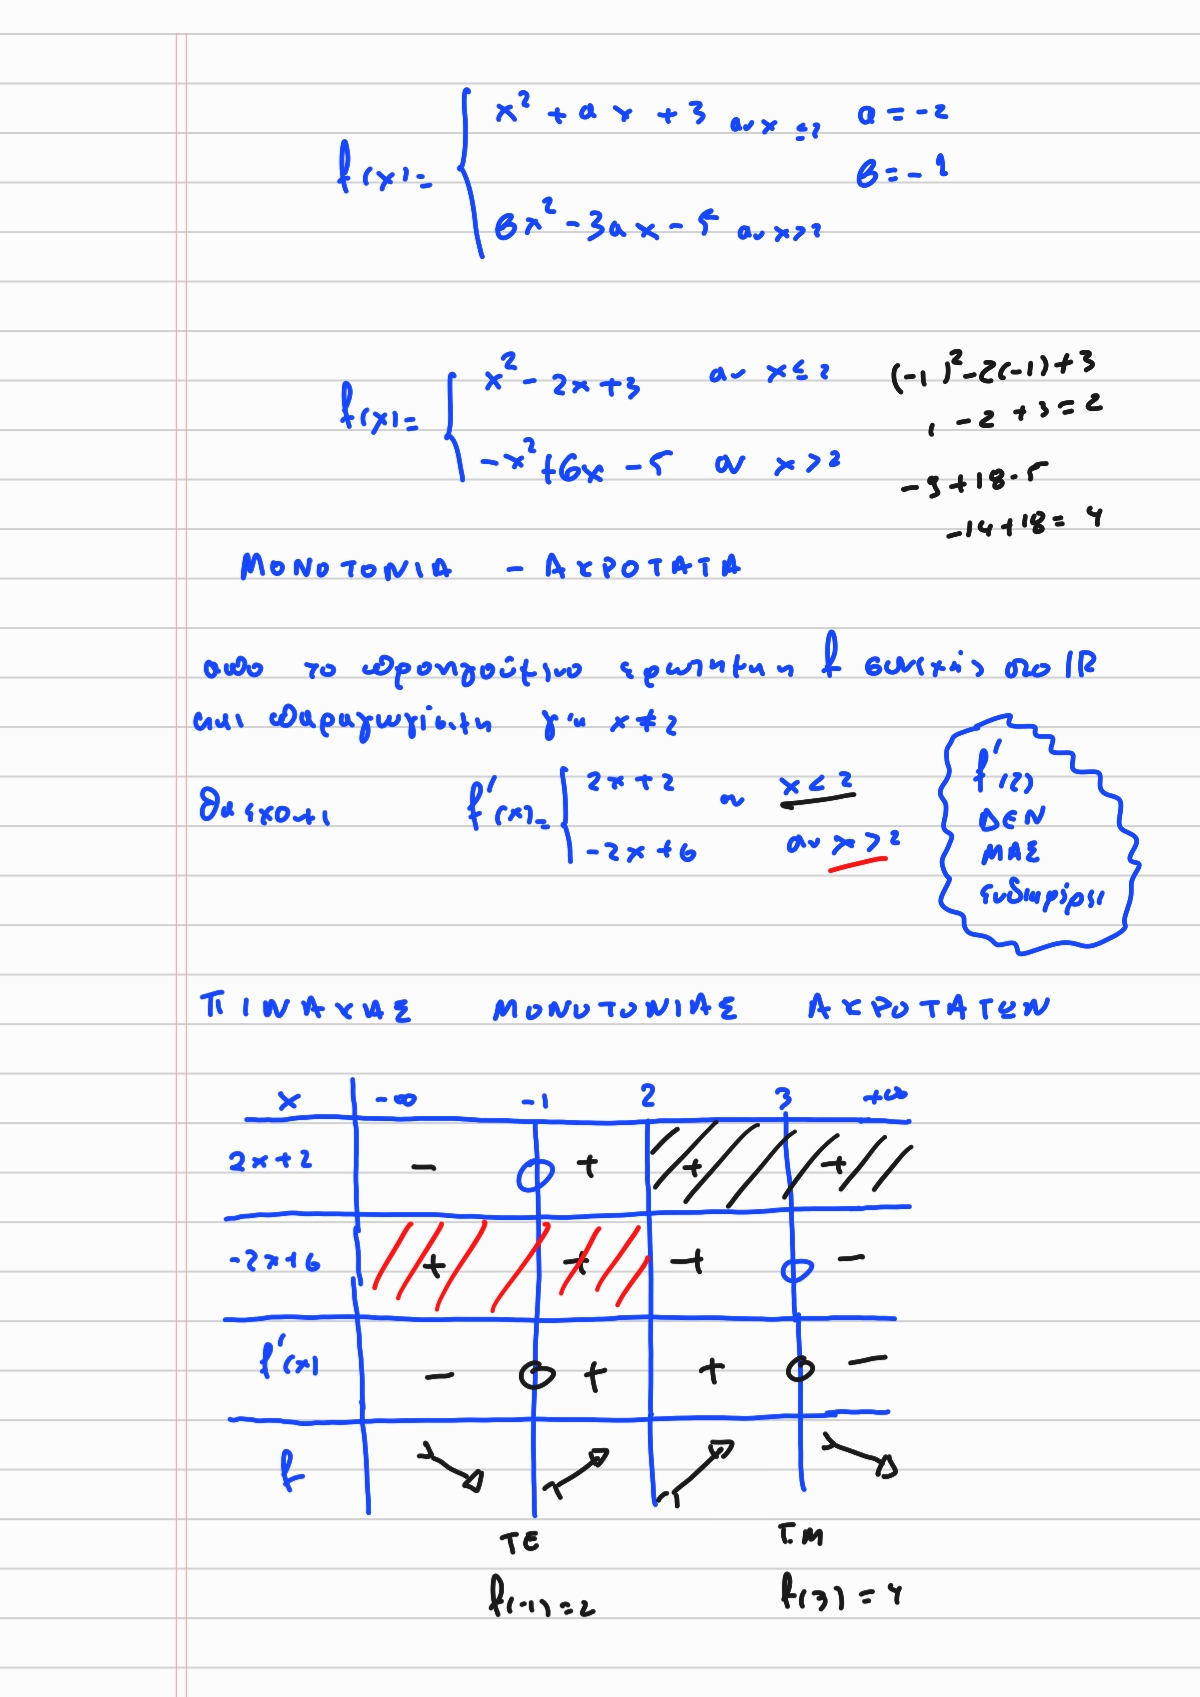 f(x)= { x² + αx + 3 αν x ≤2 α = -2
β = -1
βx² - 3αx - 5 αν x>2
f(x)= { x² - 2x+3 αν x≤2 (-1)²-2(-1)+3
1 -2 +3=2
-x²+6x -5 αν x>2 -9+18-5
-14+18= 4
ΜΟΝΟΤΟΝΙΑ - ΑΚΡΟΤΑΤΑ
απο το προηγούμενο ερώτημα η f συνεχής στο ℝ
και παραγωγίσιμη για x≠2
Θα έχουμε f'(x)= { 2x+2 αν x<2
-2x+6 αν x>2
f'(2)
ΔΕΝ
ΜΑΣ
ενδιαφέρει
ΠΙΝΑΚΑΣ ΜΟΝΟΤΟΝΙΑΣ ΑΚΡΟΤΑΤΩΝ
x -∞ -1 2 3 +∞
2x+2 - + + +
-2x+6 + + + -
f'(x) - + + -
f
ΤΕ Τ.Μ
f(-1)=2 f(3)=4